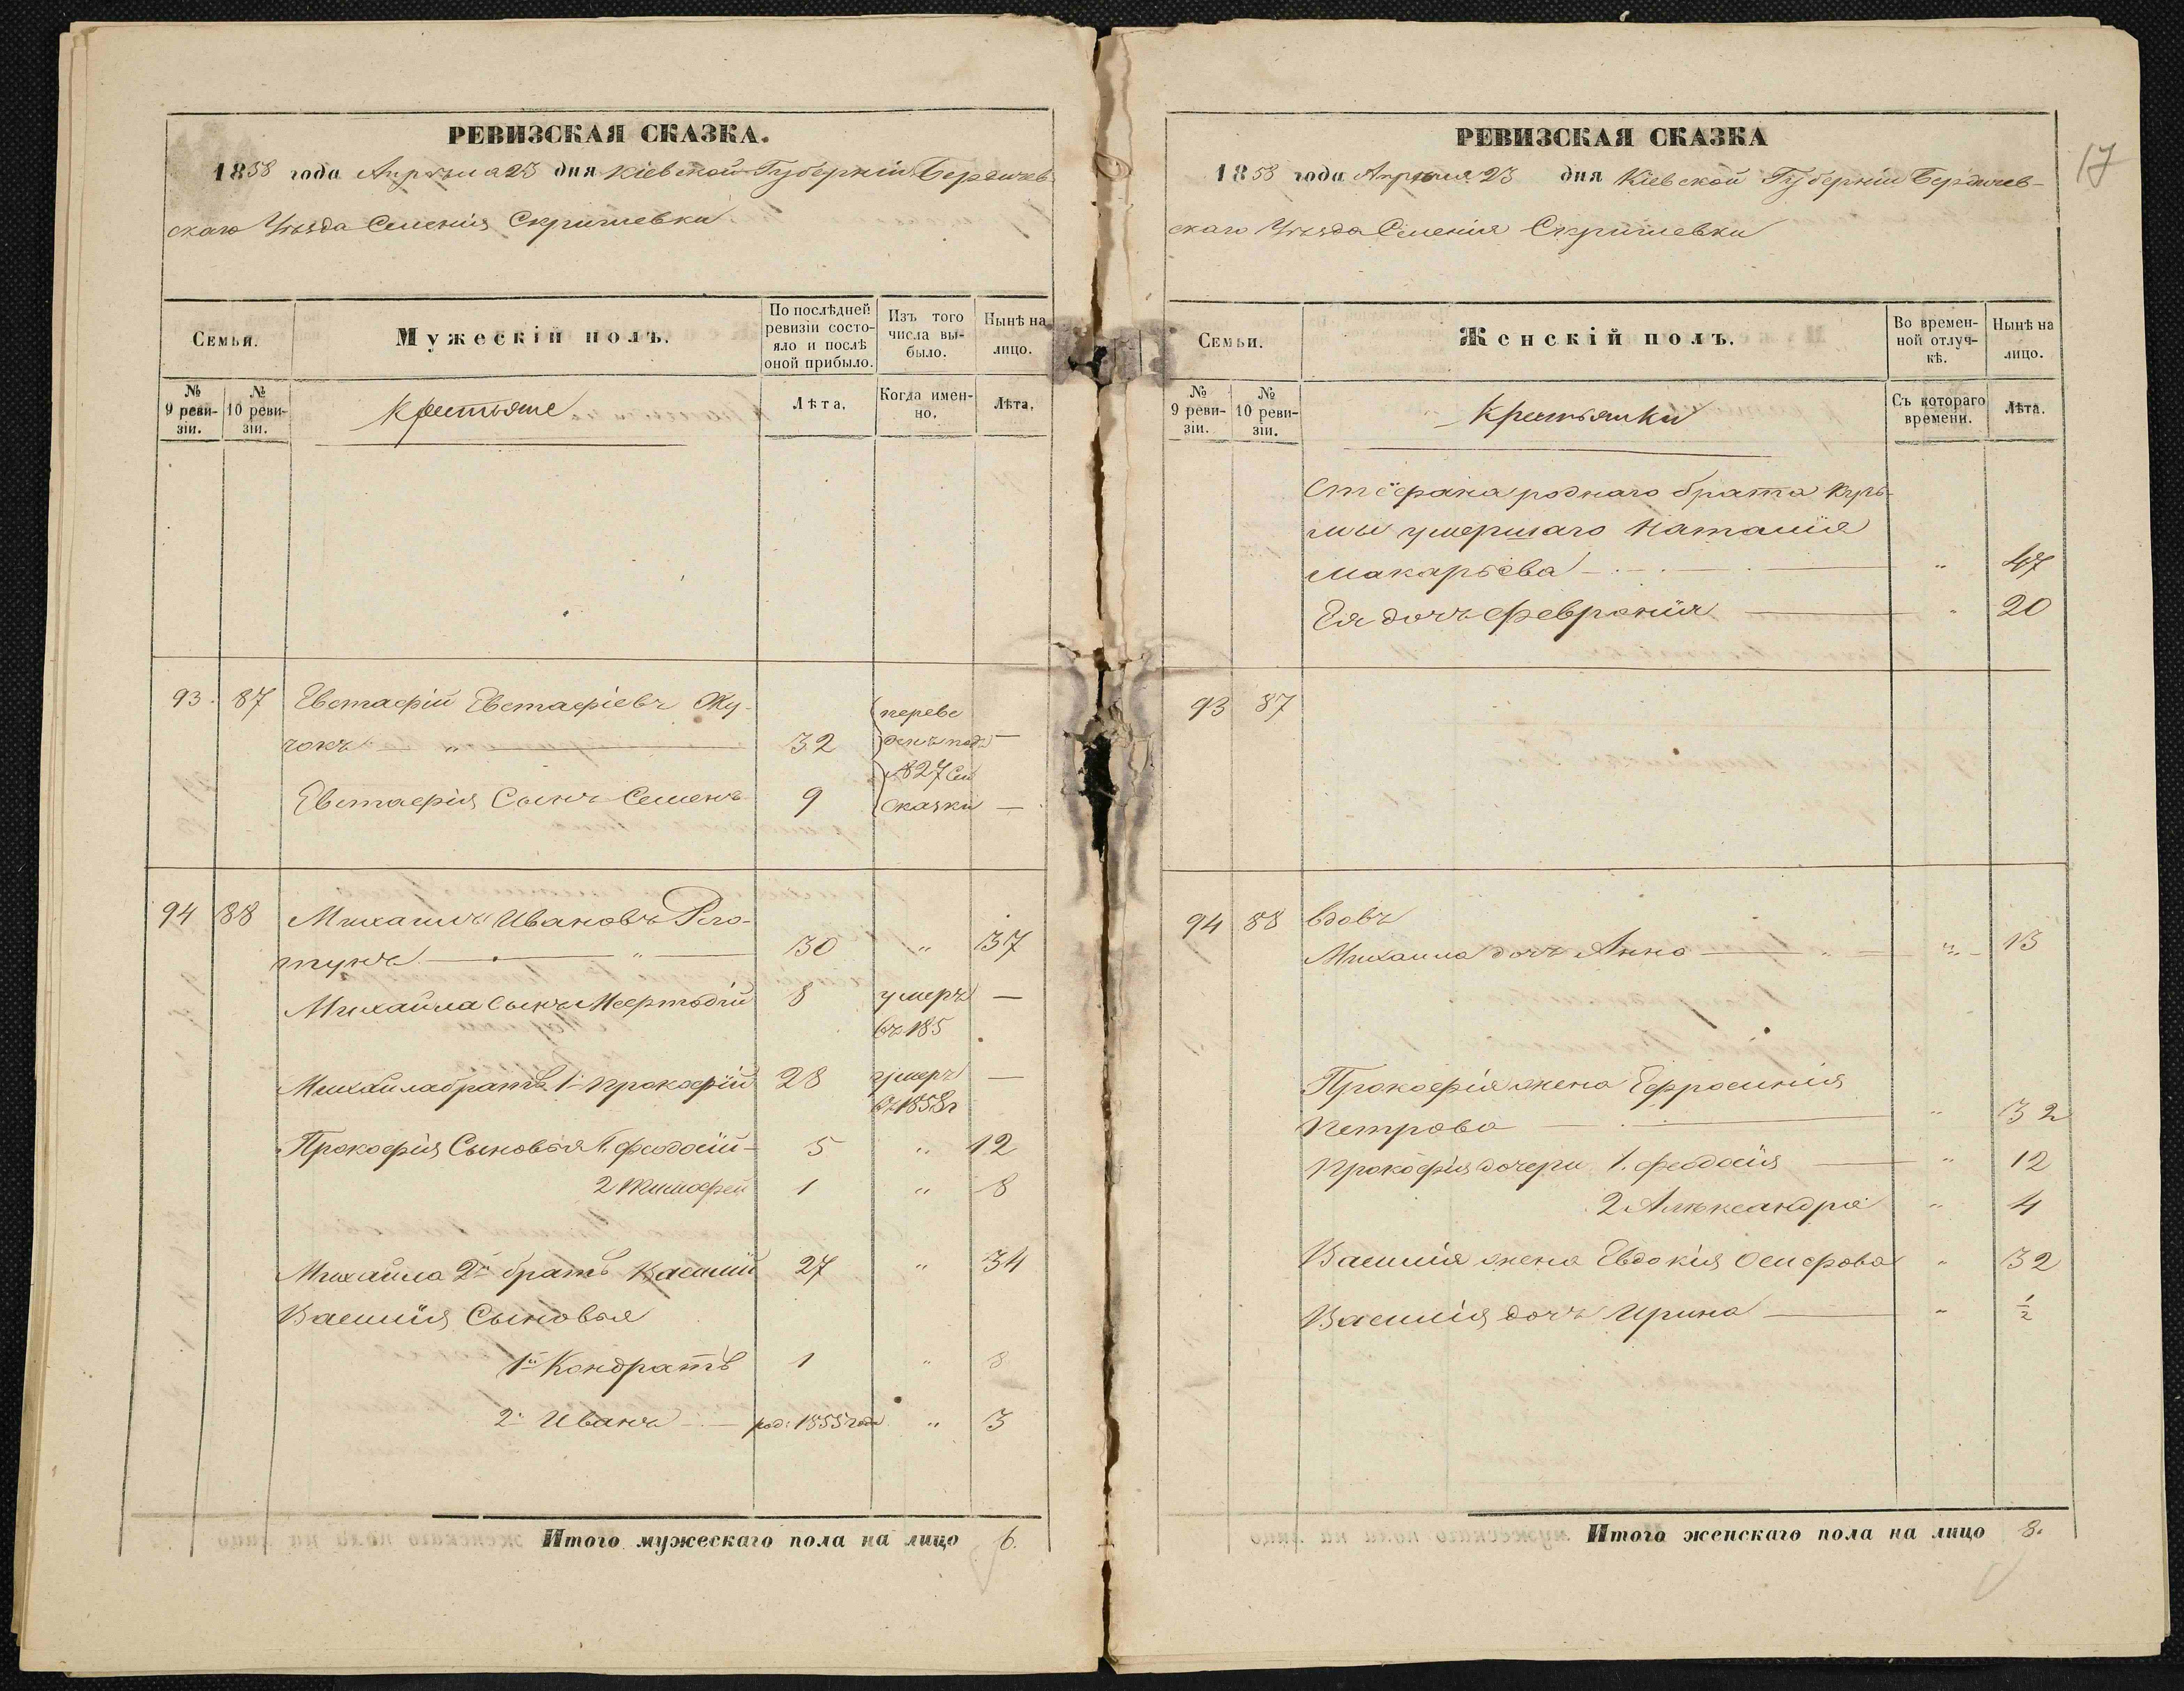 РЕВИЗСКАЯ СКАЗКА.
1858 года Апреля 23 дня Кіевской Губерніи Бердичев-
скаго Уѣзда Селенія Скригилевки
Семьи.
Мужескій полъ.
По послѣдней ревизіи состояло и послѣ оной прибыло.
Изъ того числа выбыло.
Нынѣ на лицо.
№ 9 ревизіи.
№ 10 ревизіи.
Крестьяне
Лѣта.
Когда именно.
Лѣта.
93. 87 Евстафій Евстафіевъ Жу-
чокъ — " — 32 переведенъ подъ № 27 сей сказки —
Евстафія Сынъ Семенъ 9 —
94 88 Михаилъ Ивановъ Рого-
тунъ — " — 30 " 37
Михайла Сынъ 8 умеръ въ 185 —
Михайла братъ 1й Прокофій 28 умеръ въ 1858г —
Прокофія Сыновья 1. Феодосій - 5 " 12
2 Тимофей 1 " 8
Михайла 2й братъ Василій 27 " 34
Василія Сыновья
1й Кондратъ 1 " 8
2й Иванъ — род: 1855 года " 3
Итого мужескаго пола на лицо 6.
17
РЕВИЗСКАЯ СКАЗКА
1858 года Апреля 23 дня Кіевской Губерніи Бердичев-
скаго Уѣзда Селенія Скригилевки
Семьи.
Женскій полъ.
Во временной отлучкѣ.
Нынѣ на лицо.
№ 9 ревизіи.
№ 10 ревизіи.
Крестьянки
Съ котораго времени.
Лѣта.
Стефана роднаго брата Кузь-
мы умершаго Наталія
Макарьева — " 47
Ея дочь Февронія — " 20
93 87
94 88 вдовъ
Михаила дочь Анна — " 13
Прокофія жена Ефросинія
Петрова — " 32
Прокофія дочери 1. Феодосія — " 12
2 Александра " 4
Василія жена Евдокія Осифова " 32
Василія дочь Ирина — " ½
Итого женскаго пола на лицо 8.